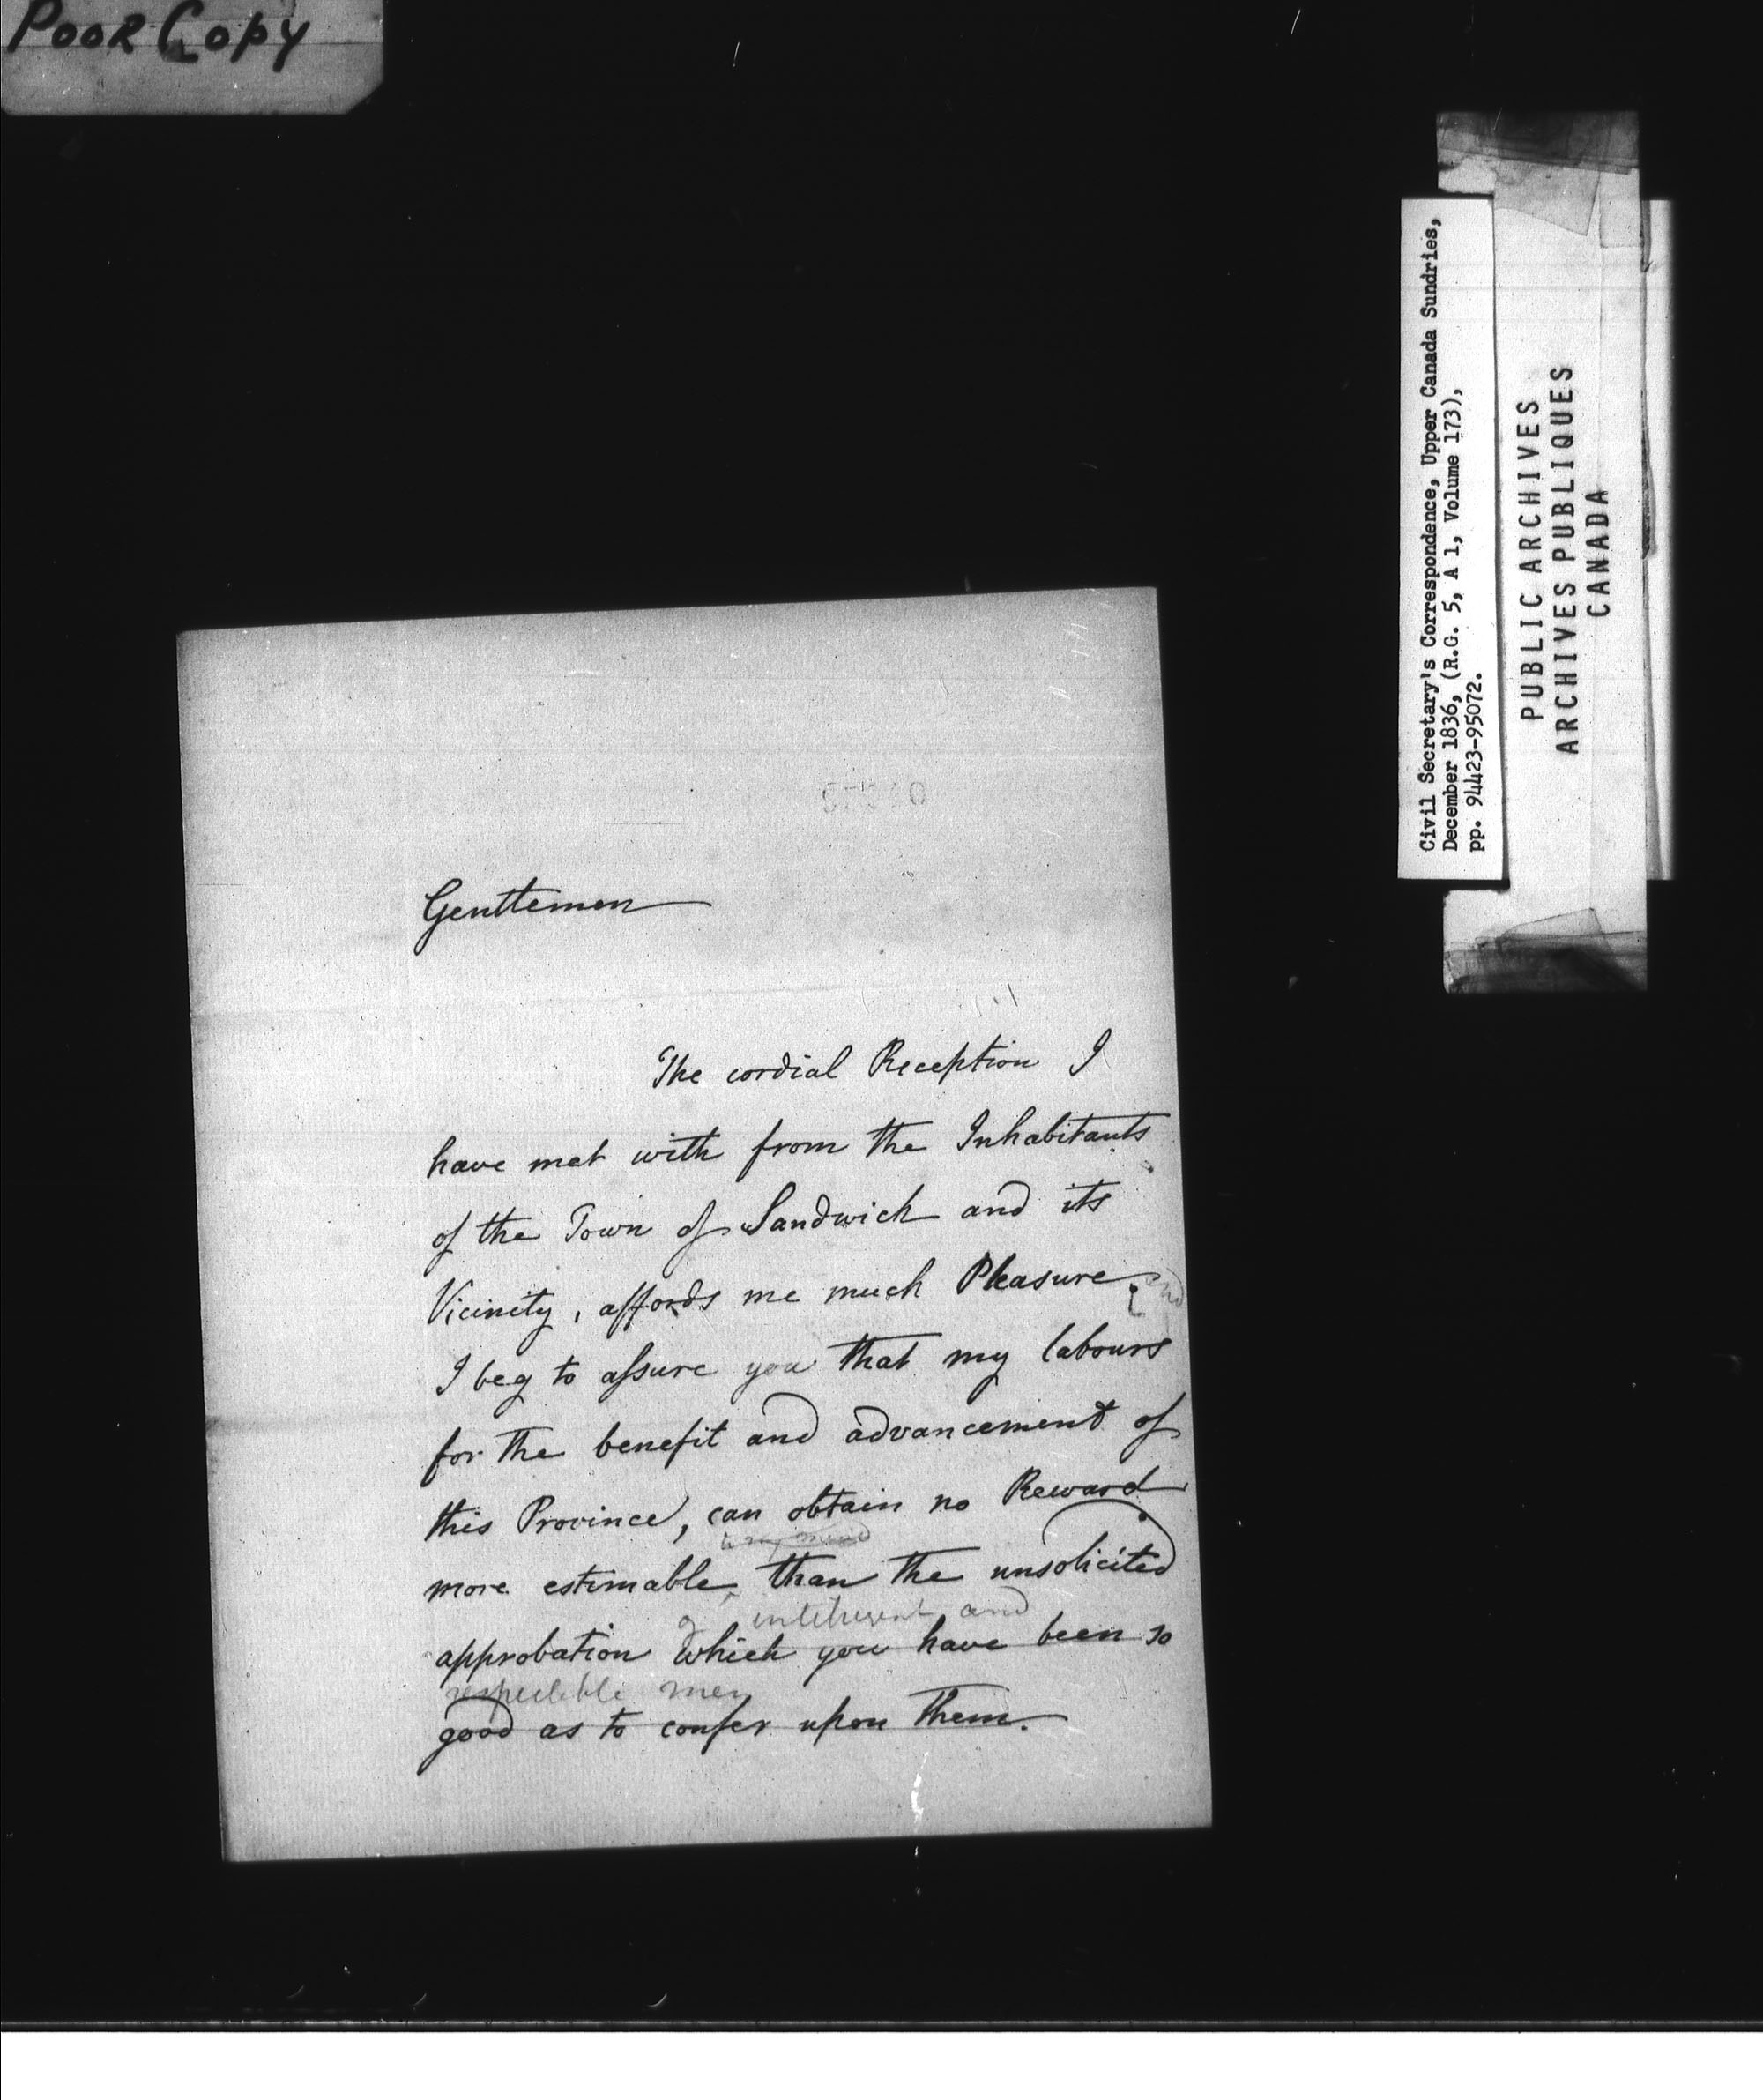 Poor Copy
Civil Secretary's Correspondence, Upper Canada Sundries,
December 1836, (R.G. 5, A 1, Volume 173),
pp. 94423-95072.
PUBLIC ARCHIVES
ARCHIVES PUBLIQUES
CANADA
Gentlemen
The cordial Reception I
have met with from the Inhabitants
of the Town of Sandwich and its
Vicinity, affords me much Pleasure, and
I beg to assure you that my labours
for the benefit and advancement of
this Province, can obtain no Reward
to my mind
more estimable, than the unsolicited
of intelligent and
approbation which you have been so
respectable men
good as to confer upon them.